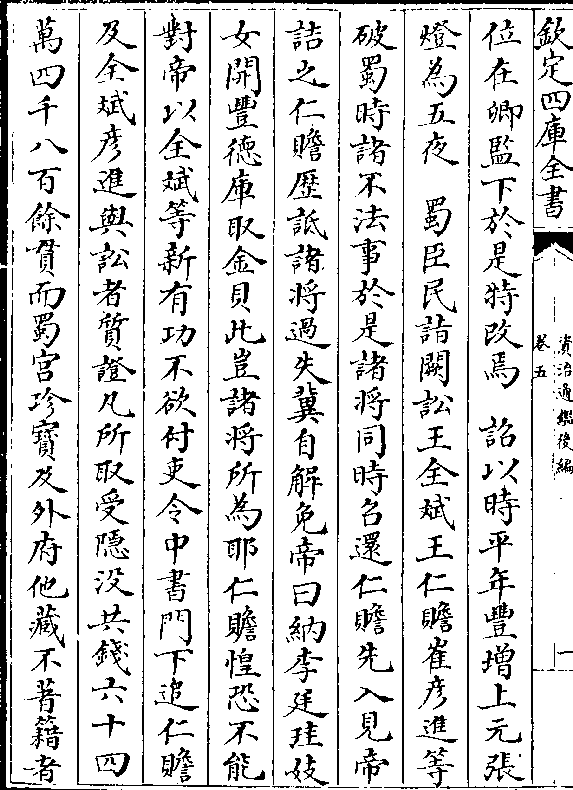 欽定四庫全書
資治通鑑後編
卷五
一
位在卿監下於是特改焉　詔以時平年豐增上元張
燈為五夜　蜀臣民詣闕訟王全斌王仁贍崔彥進等
破蜀時諸不法事於是諸將同時召還仁贍先入見帝
詰之仁贍歷詆諸將過失冀自解免帝曰納李廷珪妓
女開豐德庫取金貝此豈諸將所為耶仁贍惶恐不能
對帝以全斌等新有功不欲付吏令中書門下追仁贍
及全斌彥進與訟者質證凡所取受隱没共錢六十四
萬四千八百餘貫而蜀宮珍寶及外府他藏不著籍者